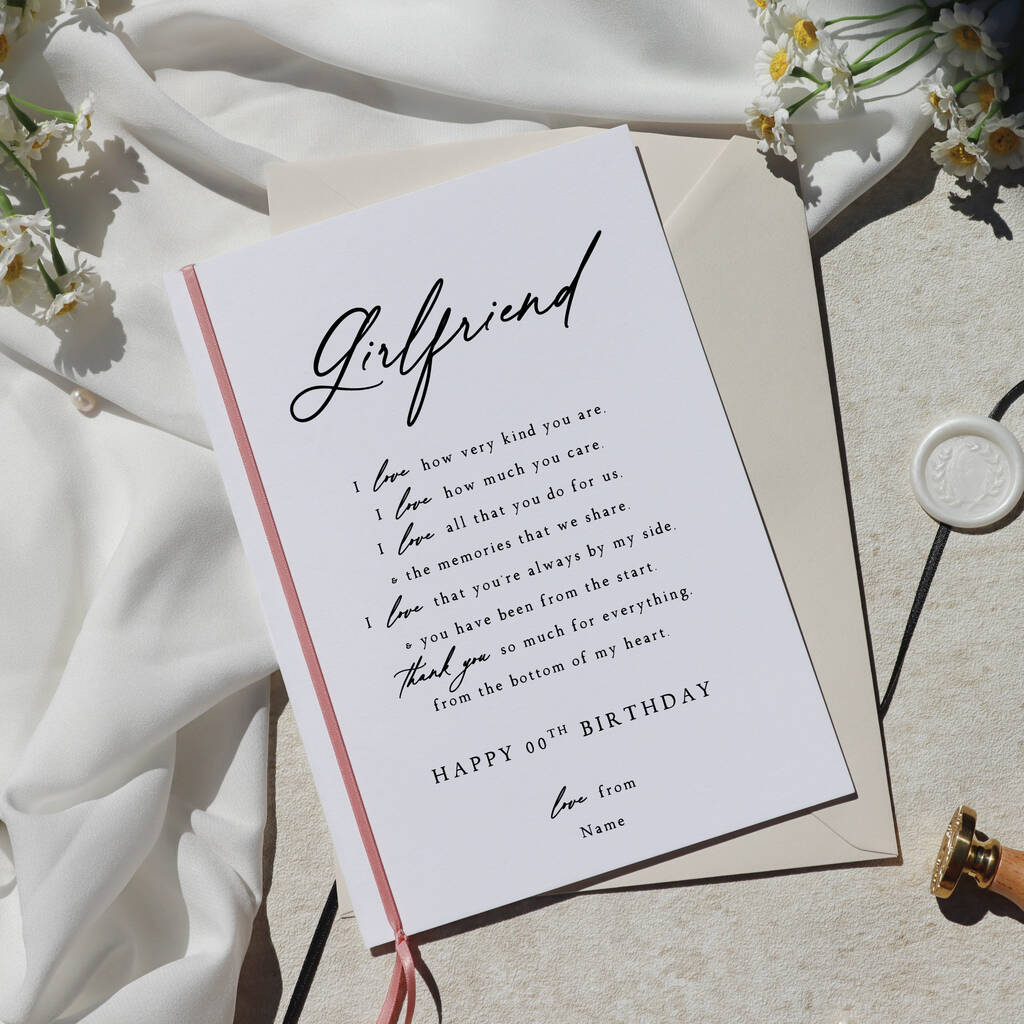 Girlfriend
I love how very kind you are.
I love how much you care.
I love all that you do for us.
& the memories that we share.
I love that you're always by my side.
& you have been from the start.
thank you so much for everything.
from the bottom of my heart.
HAPPY 00TH BIRTHDAY
love from
Name